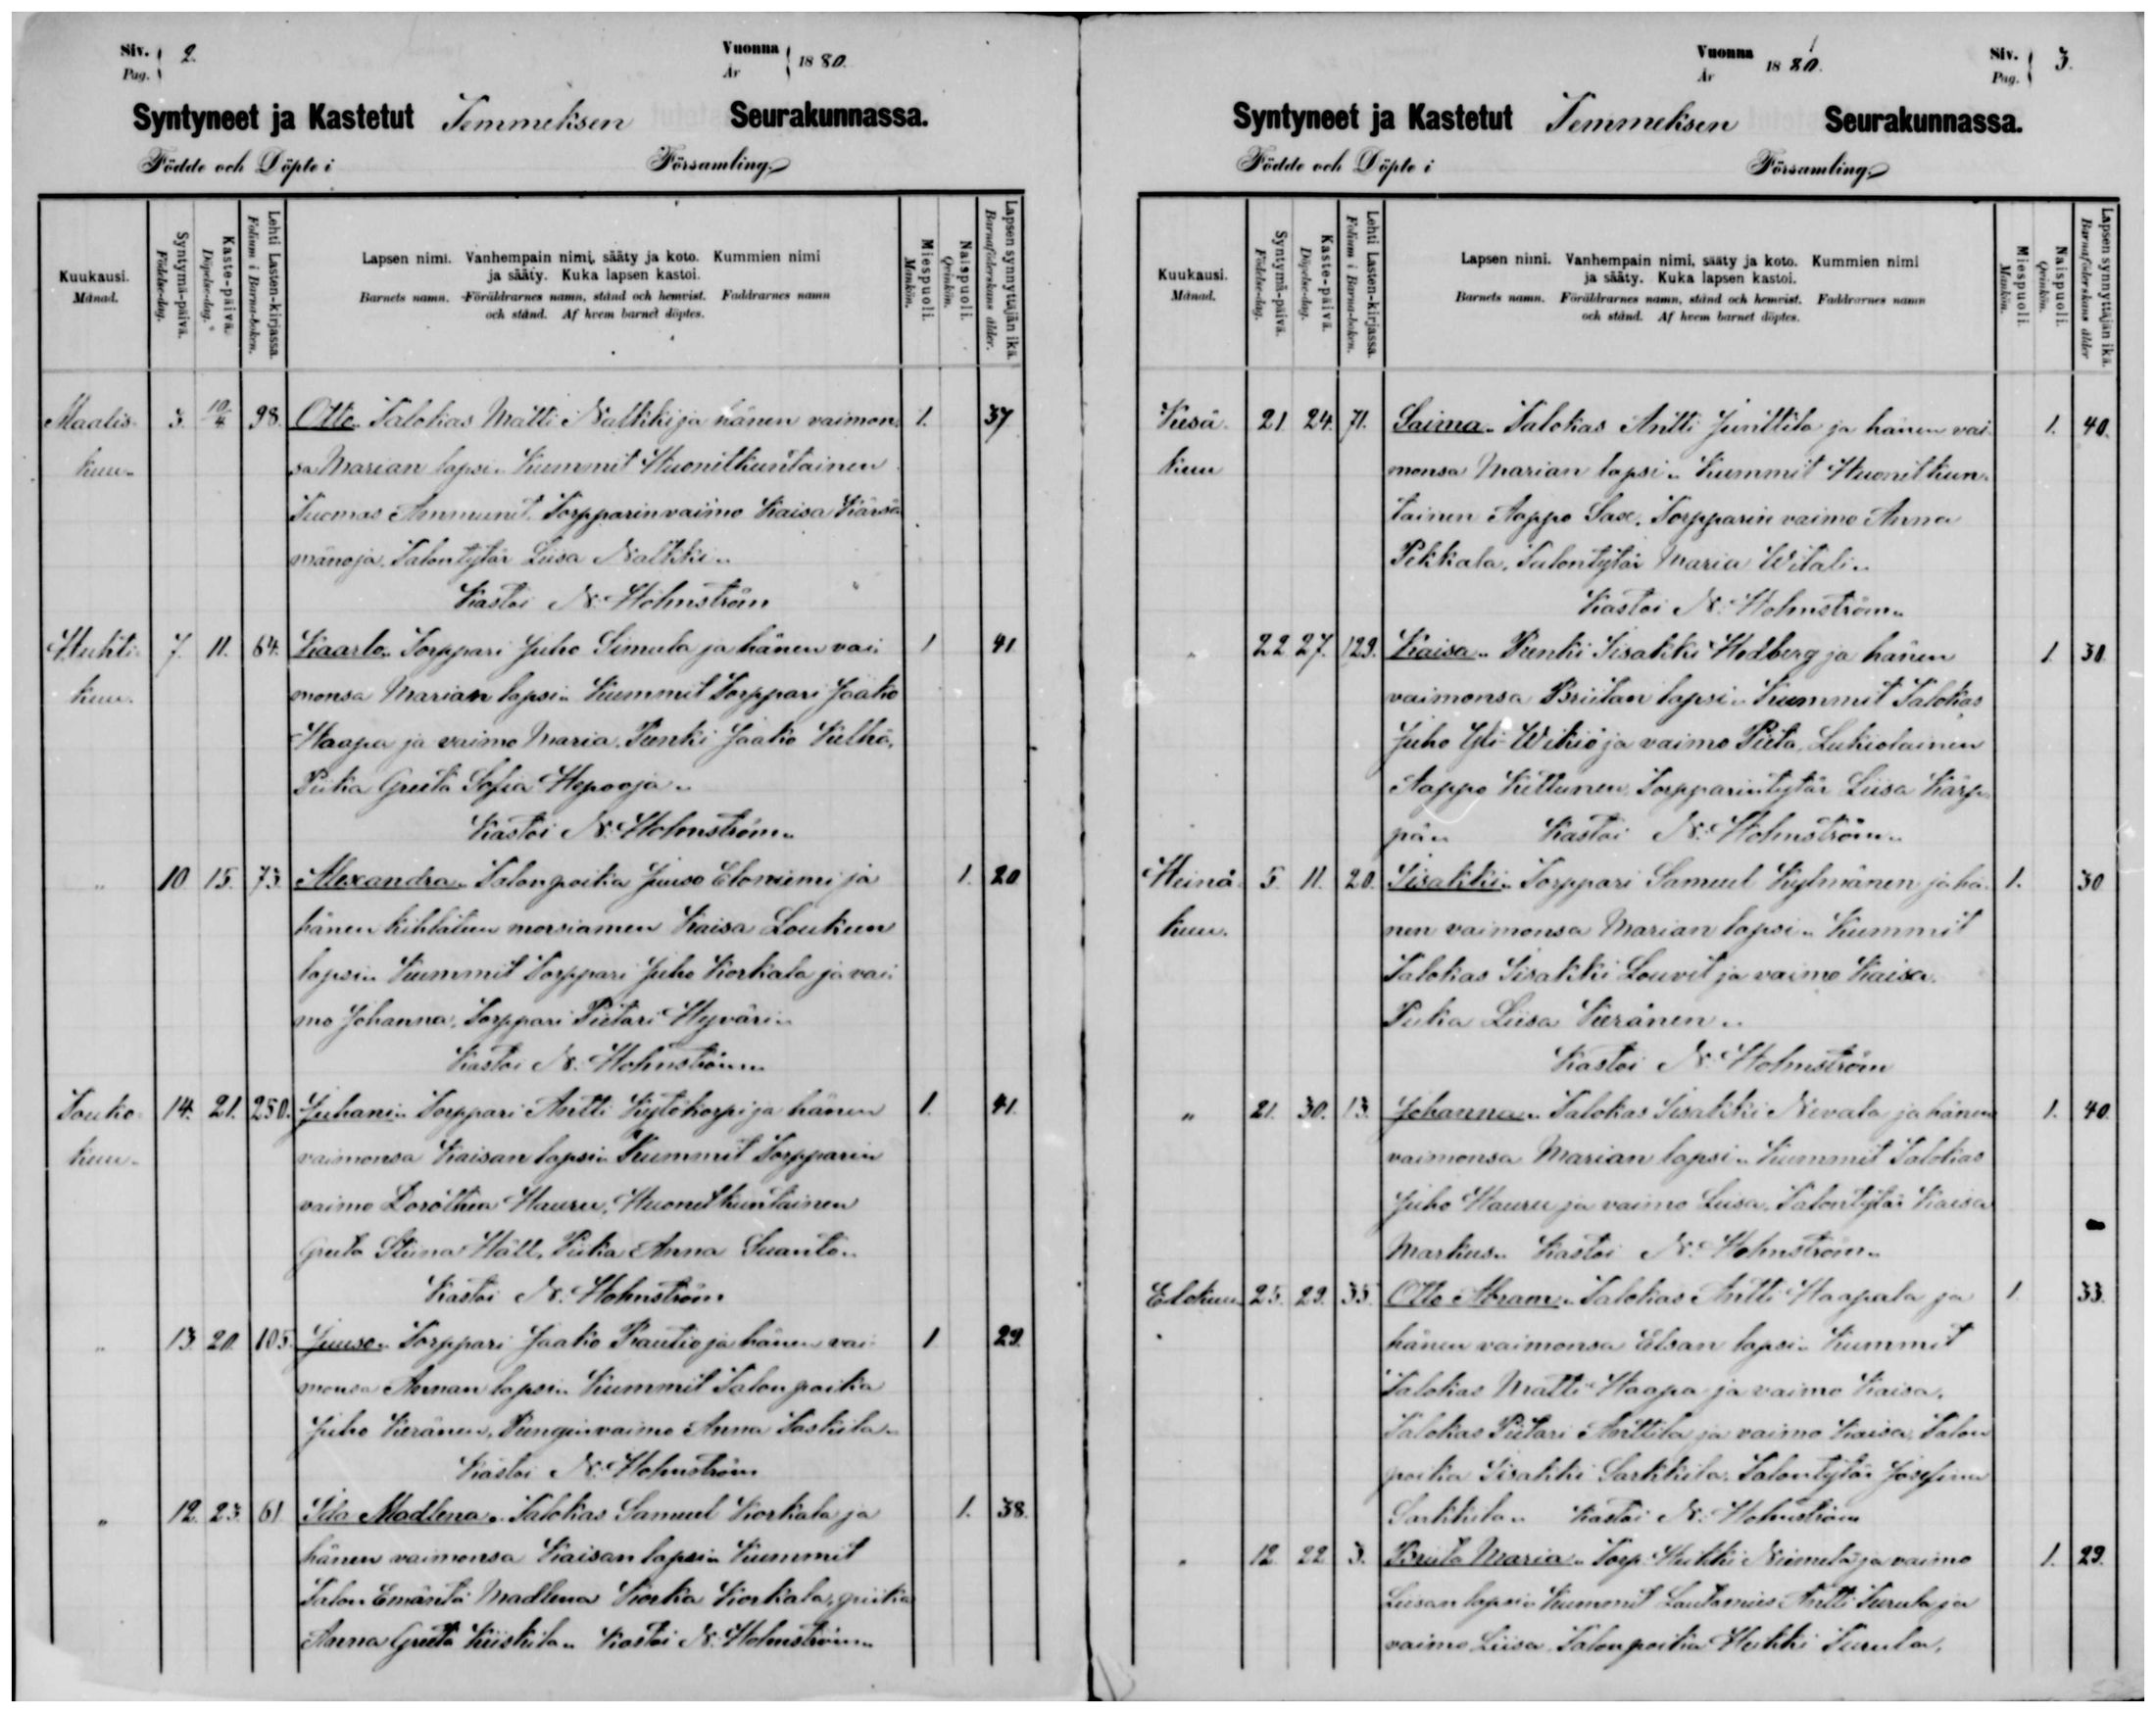 Siv. 2.
Pag.
Vuonna 1880.
År
Syntyneet ja Kastetut Temmeksen Seurakunnassa.
Födde och Döpte i Församling
Kuukausi.
Månad.
Syntymä-päivä.
Födelse-dag.
Kaste-päivä.
Döpelse-dag.
Lehti Lasten-kirjassa.
Folium i Barna-boken.
Lapsen nimi. Vanhempain nimi, sääty ja koto. Kummien nimi
ja sääty. Kuka lapsen kastoi.
Barnets namn. Föräldrarnes namn, stånd och hemvist. Faddrarnes namn
och stånd. Af hvem barnet döptes.
Miespuoli.
Mankön.
Naispuoli.
Qvinkön.
Lapsen synnyttäjän ikä.
Barnaföderskans ålder.
Maalis- 3. 10/4 98. Otto. Talokas Matti Naltkki ja hänen vaimon- 1. 37
kuu. sa Marian lapsi. Kummit Huonetkuntainen
Tuomas Ammunit. Torpparinvaimo Kaisa Kärsä
mänoja. Talontytär Liisa Naltkki.
Kastoi N. Holmström
Huhti- 7. 11. 64. Kaarlo. Torppari Juho Simula ja hänen vai- 1 41
kuu. monsa Marian lapsi. Kummit Torppari Jaako
Haapa ja vaimo Maria. Renki Jaako Kilkä.
Piika Greeta Sofia Hepooja.
Kastoi N. Holmström.
" 10 15. 73. Alexandra. Talonpoika Juuso Eloniemi ja 1. 20
hänen kihlatun morsiamen Kaisa Loukun
lapsi. Kummit Torppari Juho Korkala ja vai-
mo Johanna. Torppari Pietari Hyväri.
Kastoi N. Holmström.
Touko- 14. 21. 250. Juhani. Torppari Antti Kytökorpi ja hänen 1. 41.
kuu. vaimonsa Kaisan lapsi. Kummit Torpparin
vaimo Dorothea Hauru, Huonetkuntainen
Greeta Stiina Häll, Piika Anna Suanto.
Kastoi N. Holmström
" 13. 20. 105. Juuso. Torppari Jaako Rautio ja hänen vai- 1 29.
monsa Annan lapsi. Kummit Talonpoika
Juho Keränen, Renginvaimo Anna Taskila.
Kastoi N. Holmström
" 12. 23. 61 Ida Madlena. Talokas Samuel Korkala ja 1. 38.
hänen vaimonsa Kaisan lapsi. Kummit
Talon Emäntä Madlena Korka Korkala, piika
Anna Greeta Kiiskila. Kastoi N. Holmström.
Vuonna 1880.
År
Siv. 3.
Pag.
Syntyneet ja Kastetut Temmeksen Seurakunnassa.
Födde och Döpte i Församling
Kuukausi.
Månad.
Syntymä-päivä.
Födelse-dag.
Kaste-päivä.
Döpelse-dag.
Lehti Lasten-kirjassa.
Folium i Barna-boken.
Lapsen nimi. Vanhempain nimi, sääty ja koto. Kummien nimi
ja sääty. Kuka lapsen kastoi.
Barnets namn. Föräldrarnes namn, stånd och hemvist. Faddrarnes namn
och stånd. Af hvem barnet döptes.
Miespuoli.
Mankön.
Naispuoli.
Qvinkön.
Lapsen synnyttäjän ikä.
Barnaföderskans ålder
Kesä- 21. 24. 71. Saima. Talokas Antti Junttila ja hänen vai- 1. 40.
kuu monsa Marian lapsi. Kummit Huonetkun-
tainen Aappo Sax. Torpparin vaimo Anna
Pekkala. Talontytär Maria Witali.
Kastoi N. Holmström.
" 22 27. 129. Kaisa. Renki Iisakki Hedberg ja hänen 1. 31
vaimonsa Briitan lapsi. Kummit Talokas
Juho Yli-Wikiö ja vaimo Pieta. Lukiolainen
Aappo Kittunen. Torpparintytär Liisa Kärp-
pän Kastoi N. Holmström.
Heinä- 5. 11. 20. Iisakki. Torppari Samuel Kylmänen ja hä- 1. 30
kuu. nen vaimonsa Marian lapsi. Kummit
Talokas Iisakki Louvit ja vaimo Kaisa.
Piika Liisa Keränen.
Kastoi N. Holmström
" 21. 30. 13. Johanna. Talokas Iisakki Nevala ja hänen 1. 40.
vaimonsa Marian lapsi. Kummit Talokas
Juho Hauru ja vaimo Liisa. Talontytär Kaisa
Markus. Kastoi N. Holmström.
Elokuu 25. 29. 35. Otto Abram. Talokas Antti Haapala ja 1. 33.
hänen vaimonsa Elsan lapsi. Kummit
Talokas Matti Haapa ja vaimo Kaisa.
Talokas Pietari Anttila ja vaimo Kaisa, Talon
poika Iisakki Sarkkila. Talontytär Josefina
Sarkkila. Kastoi N. Holmström
" 12. 22. 3. Briita Maria. Torp. Heikki Niemelä ja vaimo 1. 29.
Liisan lapsi. Kummit Lautamies Antti Turula ja
vaimo Liisa. Talonpoika Heikki Turula,